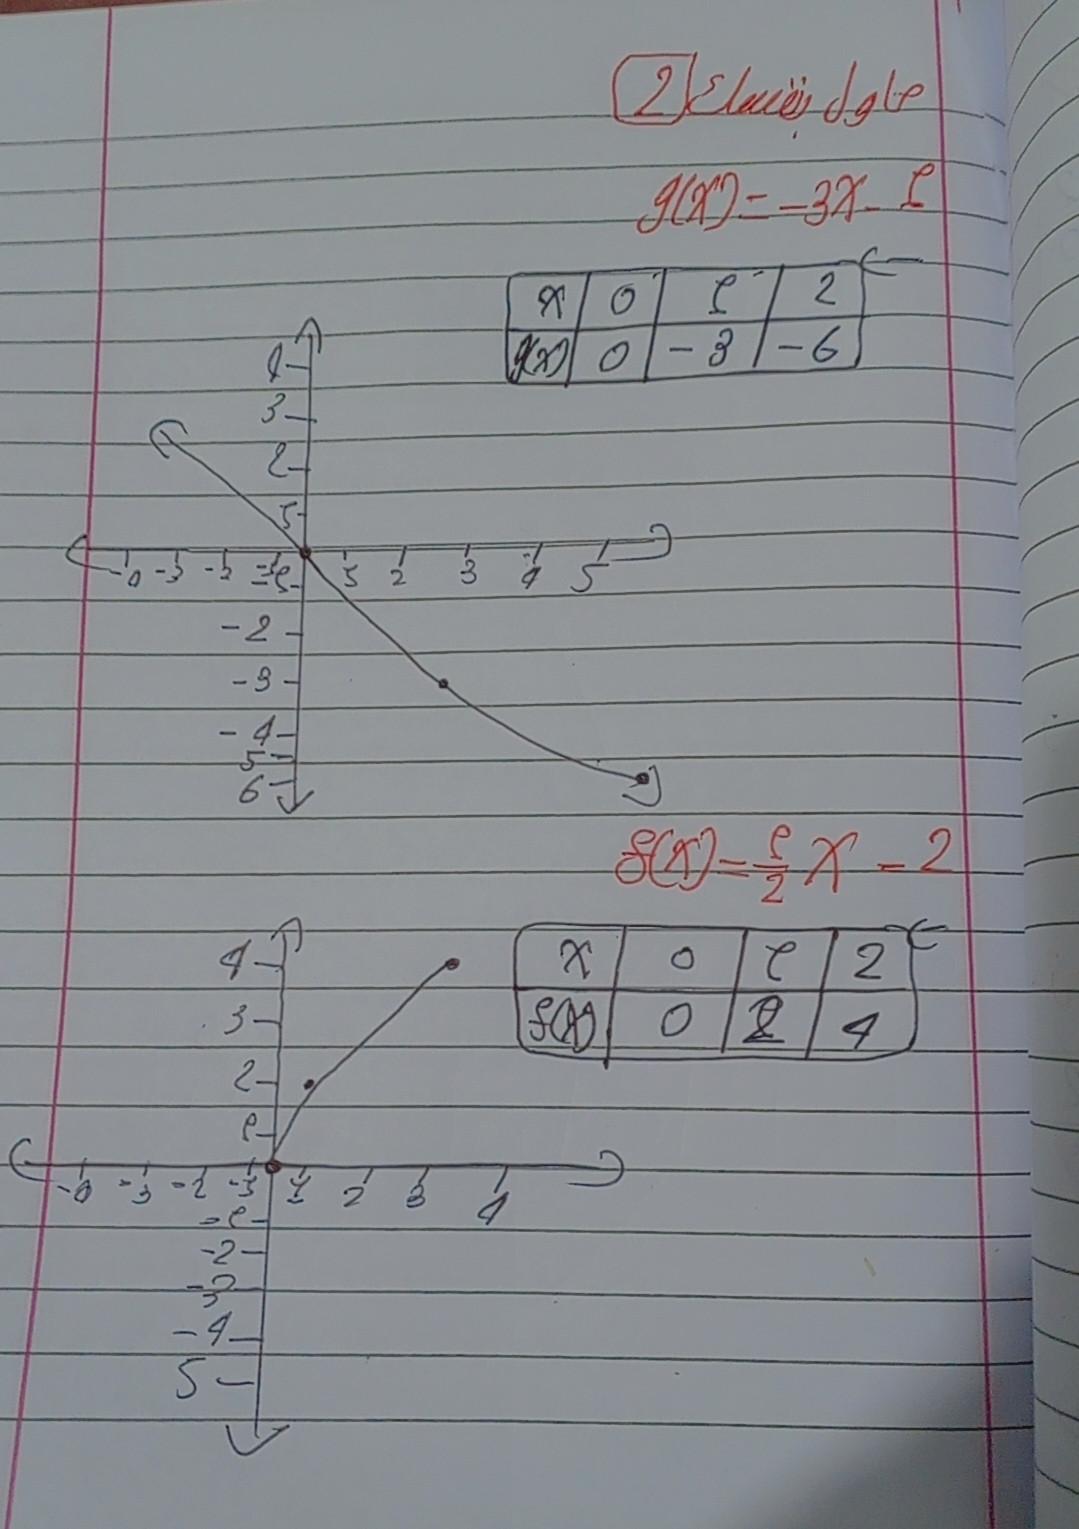 حاول بنفسك 2
g(x) = -3x - 1
x 0 1 2
g(x) 0 -3 -6
4
3
2
1
-4 -3 -2 -1 1 2 3 4 5
-1
-2
-3
-4
5
6
f(x) = 1/2 x - 2
x 0 1 2
f(x) 0 2 4
4
3
2
1
-4 -3 -2 -1 1 2 3 4
-1
-2
-3
-4
5